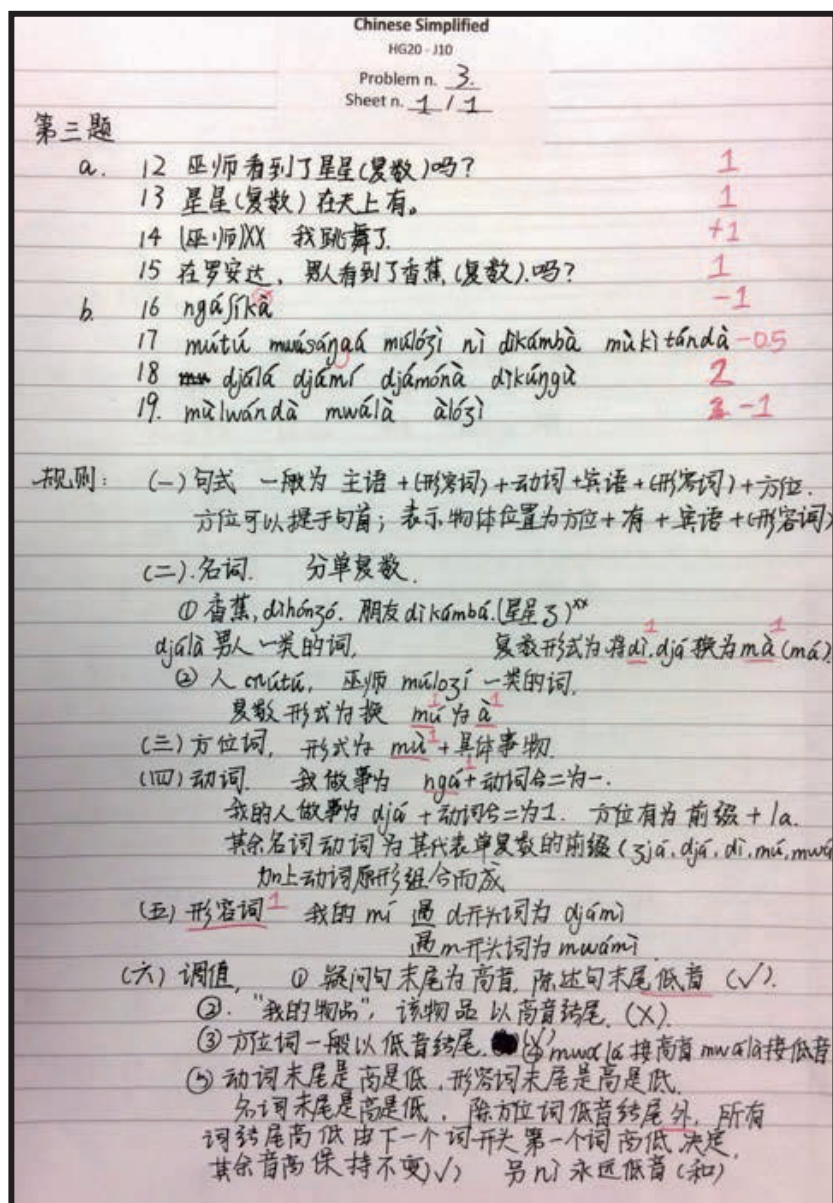 Chinese Simplified
HG20 - J10
Problem n. 3.
Sheet n. 1 / 1
第三题
a. 12 巫师看到了星星(复数)吗? 1
13 星星(复数)在天上有。 1
14 (巫师)XX 我跳舞了. +1
15 在罗安达, 男人看到了香蕉,(复数).吗? 1
b. 16 ngáʃíkà -1
17 mútú mwásángá múlóʒì nì dìkámbà mùkìtándà -0.5
18 djálá djámí djámónà dìkúŋgù 2
19. mùlwándà mwálà àlóʒì -1
规则: (一)句式 一般为 主语+(形容词)+动词+宾语+(形容词)+方位.
方位可以提于句首; 表示物体位置为方位+有+宾语+(形容词)
(二).名词. 分单复数.
① 香蕉, dìhónʒó. 朋友 dìkámbá.(星星 ʒ)xx
djálà 男人一类的词, 复数形式为将dì.djá换为mà(má). 1 1
② 人 mútú, 巫师 múloʒí 一类的词.
复数形式为换 mú为à 1 1
(三)方位词, 形式为 mù+具体事物. 1
(四)动词. 我做事为 ngá+动词合二为一. 1
我的人做事为 djá+动词合二为1. 方位有为前缀+la.
其余名词动词为其代表单复数的前缀(ʒjá. djá. dì. mú, mwá
加上动词原形组合而成
(五)形容词 1 我的 mí 遇 d开头词为 djámì
遇m开头词为 mwámì
(六)调值, ① 疑问句末尾为高音, 陈述句末尾低音 (√).
②. "我的物品", 该物品以高音结尾. (X).
③ 方位词一般以低音结尾. (√) ④ mwalá接高音 mwálà接低音
⑤ 动词末尾是高是低, 形容词末尾是高是低.
名词末尾是高是低, 除方位词低音结尾外, 所有
词结尾高低由下一个词开头第一个词高低决定,
其余音高保持不变√) 另nì永远低音(和)